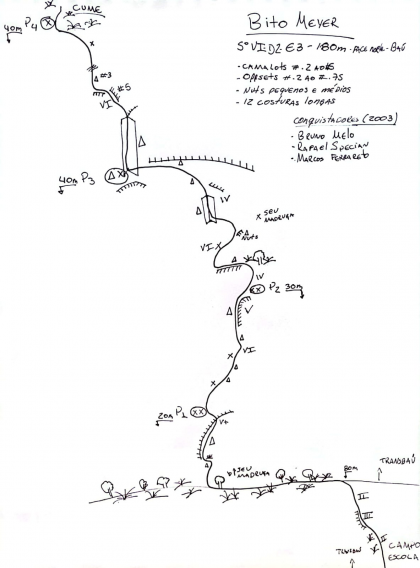 Bito Meyer
5º VI D2 E3 - 180m - FACE NORTE - BAÚ
- CAMALOTS #.2 AO #5
- OFFSETS #.2 AO #.75
- NUTS PEQUENOS E MÉDIOS
- 12 COSTURAS LONGAS
CONQUISTADORES (2003)
- BRUNO MELO
- RAFAEL SPECIAN
- MARCOS FERRARETO
CUME
40m P4
#3
#5
VI
40m P3
IV
SEU
MADRUGA
NUTS
VI
IV
P2 30m
V
VI
20m P1
V+
SEU
MADRUGA
80m
TRANSBAÚ
II
III
II
CAMPO
ESCOLA